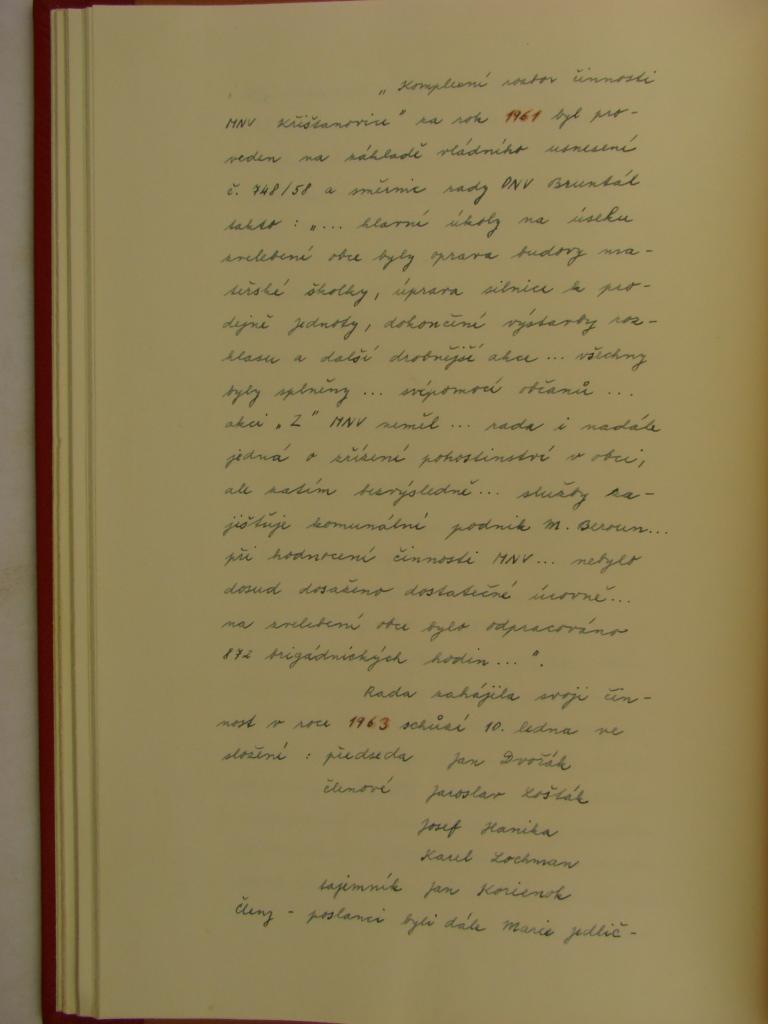 „Komplexní rozbor činnosti
MNV Křišťanovice" za rok 1961 byl pro-
veden na základě vládního usnesení
č. 748/58 a směrnic rady ONV Bruntál
takto : „... hlavní úkoly na úseku
zvelebení obce byly oprava budovy ma-
teřské školky, úprava silnice k pro-
dejně Jednoty, dokončení výstavby roz-
hlasu a další drobnější akce ... všechny
byly splněny ... svépomocí občanů ...
akci „Z" MNV neměl ... rada i nadále
jedná o zřízení pohostinství v obci,
ale zatím bezvýsledně ... služby za-
jišťuje komunální podnik M. Beroun...
při hodnocení činnosti MNV ... nebylo
dosud dosaženo dostatečné úrovně...
na zvelebení obce bylo odpracováno
872 brigádnických hodin ...".
Rada zahájila svoji čin-
nost v roce 1963 schůzí 10. ledna ve
složení : předseda Jan Dvořák
členové Jaroslav Košťák
Josef Hanika
Karel Lochman
tajemník Jan Korienok
členy - poslanci byli dále Marie Jedlič-